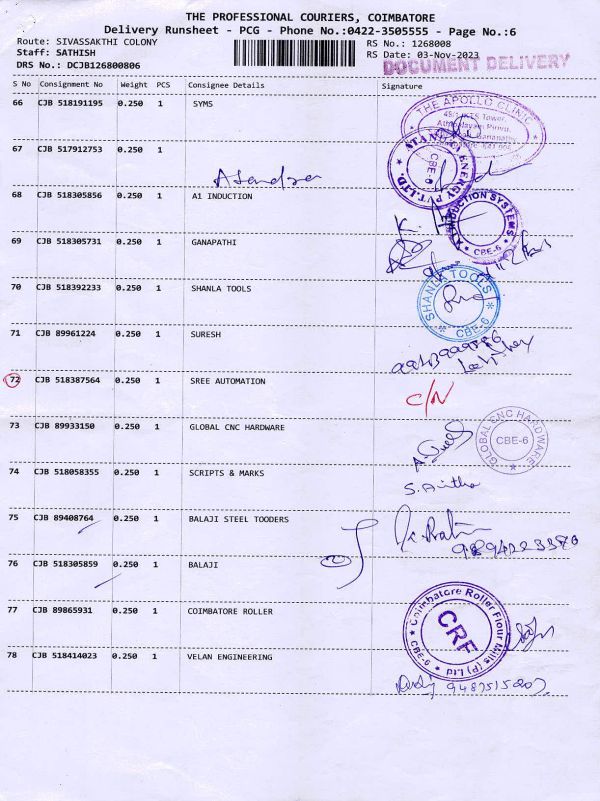 THE PROFESSIONAL COURIERS, COIMBATORE
Delivery Runsheet - PCG - Phone No.:0422-3505555 - Page No.:6
Route: SIVASSAKTHI COLONY RS No.: 1268008
Staff: SATHISH RS Date: 03-Nov-2023
DRS No.: DCJB126800806 DOCUMENT DELIVERY
S No Consignment No Weight PCS Consignee Details Signature
66 CJB 518191195 0.250 1 SYMS
THE APOLLO CLINIC
67 CJB 517912753 0.250 1
ATANDRA ENERGY PVT.LTD. CBE-6
Atandra
68 CJB 518305856 0.250 1 A1 INDUCTION
A1 INDUCTION SYSTEMS CBE-6
69 CJB 518305731 0.250 1 GANAPATHI
70 CJB 518392233 0.250 1 SHANLA TOOLS
SHANLA TOOLS CBE-6
71 CJB 89961224 0.250 1 SURESH
72 CJB 518387564 0.250 1 SREE AUTOMATION
C/N
73 CJB 89933150 0.250 1 GLOBAL CNC HARDWARE
GLOBAL CNC HARDWARE CBE-6
74 CJB 518058355 0.250 1 SCRIPTS & MARKS
S. Anitha
75 CJB 89408764 0.250 1 BALAJI STEEL TOODERS
9894223370
76 CJB 518305859 0.250 1 BALAJI
77 CJB 89865931 0.250 1 COIMBATORE ROLLER
Coimbatore Roller Flour Mills (P) Ltd CBE-6 CRF
78 CJB 518414023 0.250 1 VELAN ENGINEERING
9487515207